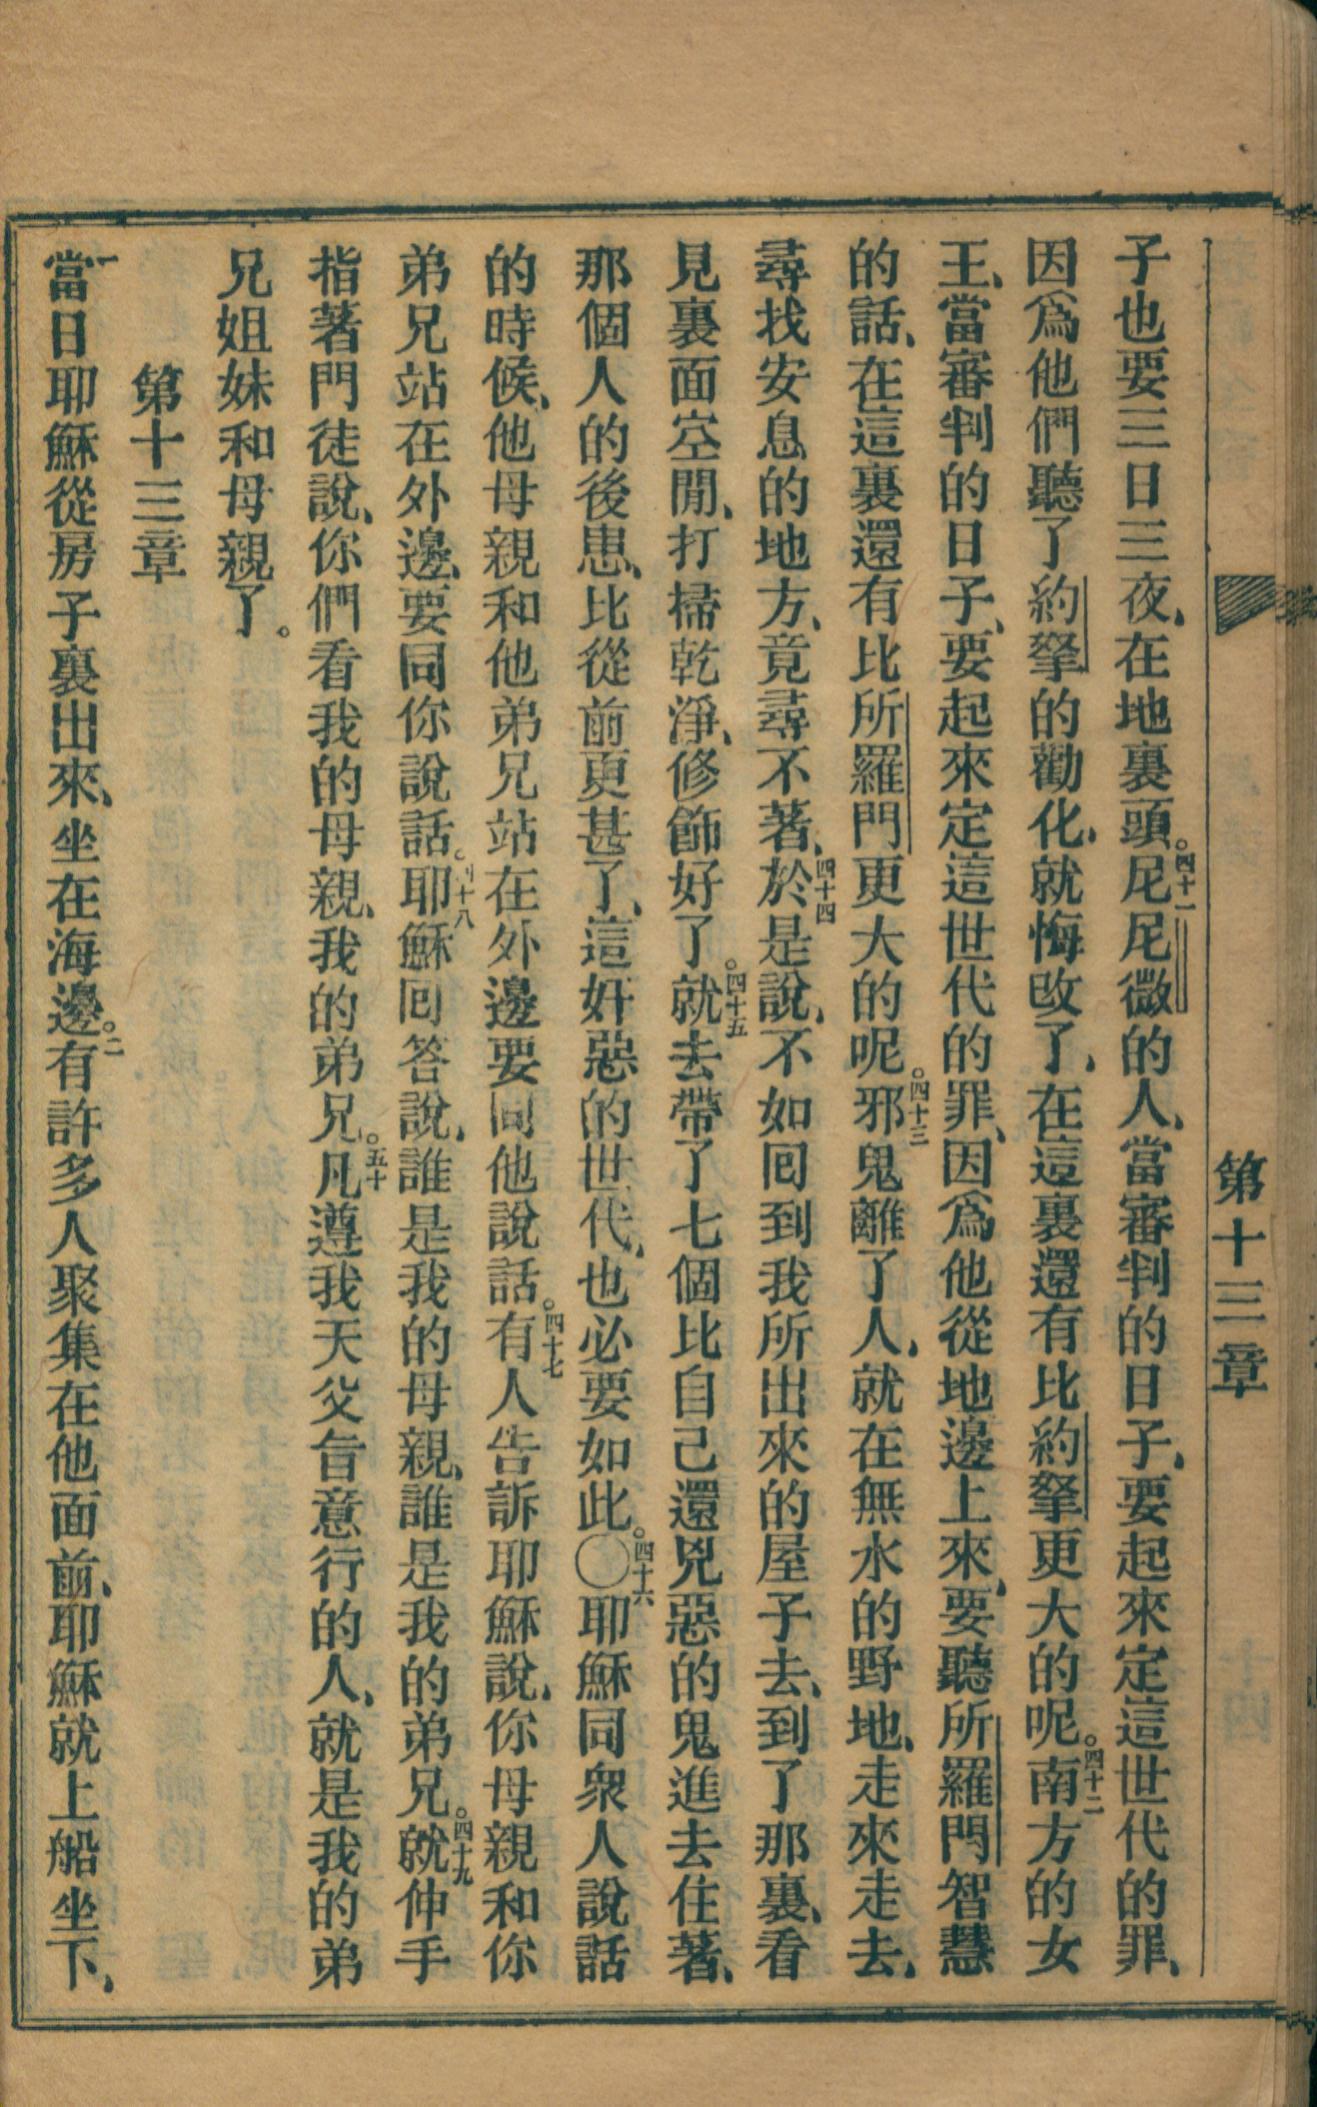 第十三章
子也要三日三夜、在地裏頭。四十一尼尼微的人、當審判的日子、要起來定這世代的罪、
因爲他們聽了約拏的勸化、就悔改了、在這裏還有比約拏更大的呢。四十二南方的女
王、當審判的日子、要起來定這世代的罪、因爲他從地邊上來、要聽所羅門智慧
的話、在這裏還有比所羅門更大的呢。四十三邪鬼離了人、就在無水的野地、走來走去、
尋找安息的地方、竟尋不著、四十四於是說、不如囘到我所出來的屋子去、到了那裏、看
見裏面空閒、打掃乾淨、修飾好了。四十五就去帶了七個比自己還兇惡的鬼進去住著、
那個人的後患、比從前更甚了、這奸惡的世代、也必要如此。〇四十六耶穌同衆人說話
的時候、他母親和他弟兄站在外邊要同他說話。四十七有人告訴耶穌說、你母親和你
弟兄站在外邊、要同你說話。四十八耶穌囘答說、誰是我的母親、誰是我的弟兄。四十九就伸手
指著門徒說、你們看我的母親、我的弟兄。五十凡遵我天父旨意行的人、就是我的弟
兄姐妹和母親了。
第十三章
一當日耶穌從房子裏出來、坐在海邊。二有許多人聚集在他面前、耶穌就上船坐下、